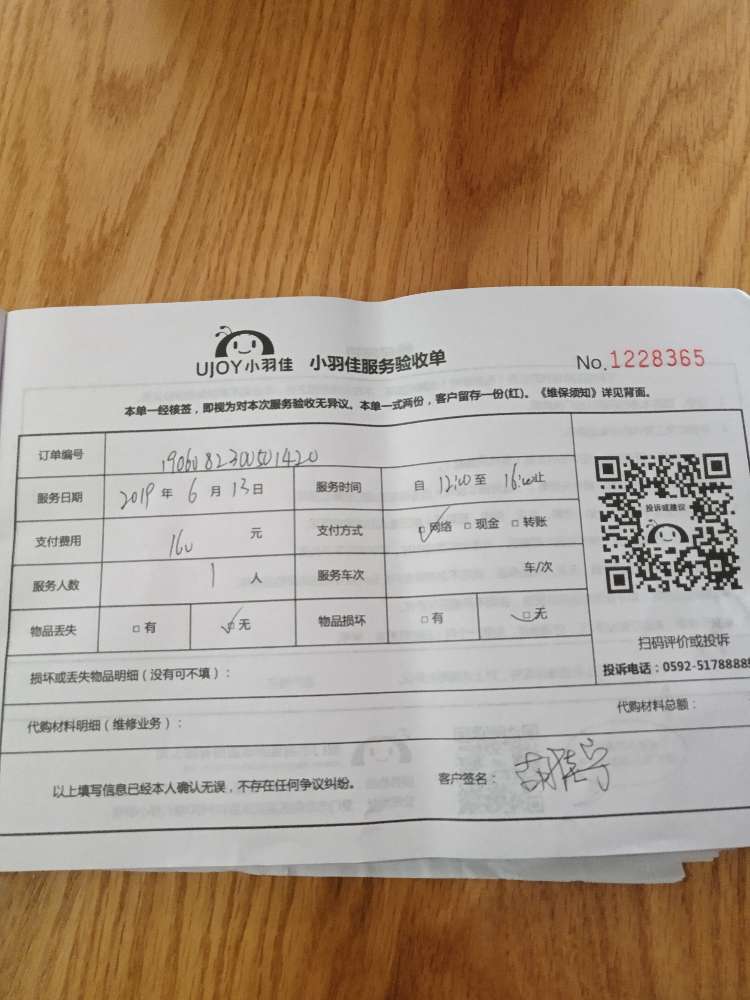 UJOY小羽佳 小羽佳服务验收单 No.1228365
本单一经核签，即视为对本次服务验收无异议。本单一式两份，客户留存一份(红)。《维保须知》详见背面。
订单编号 1906082300501420
服务日期 2019年6月13日 服务时间 自12:00至16:00止
投诉或建议
支付费用 160元 支付方式 □网络 □现金 □转账
服务人数 1人 服务车次 车/次
物品丢失 □有 □无 物品损坏 □有 □无
扫码评价或投诉
投诉电话：0592-5178888
损坏或丢失物品明细（没有可不填）：
代购材料明细（维修业务）： 代购材料总额：
以上填写信息已经本人确认无误，不存在任何争议纠纷。 客户签名：